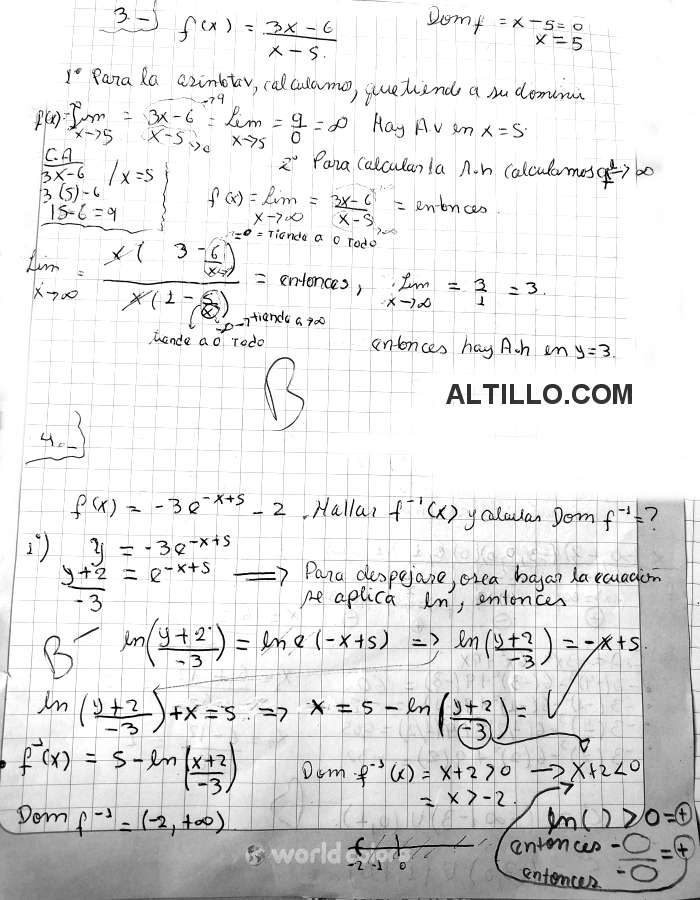 3.-
f(x) = 3x-6 / x-5.
Dom f = x-5=0
x=5
1° Para la asintotav, calculamos, que tiende a su dominio
f(x)= Lim x→5 = 3x-6 / x-5 = Lim x→5 = 9/0 = ∞ Hay A.v en x=5.
→9
→0
C.A
3x-6 / x=5
3.(5)-6
15-6=9
2° Para calcular la A.h calculamos →∞
f(x)= Lim x→∞ = 3x-6 / x-5 = entonces.
=0 = Tiende a 0 Todo
Lim x→∞ = x( 3 - 6/x ) / x(1 - 5/x) = entonces, Lim x→∞ = 3/1 = 3.
→tiende a ∞
tiende a 0 Todo
entonces hay A.h en y=3.
B
ALTILLO.COM
4.-
f(x) = -3e^{-x+5} - 2. Hallar f^{-1}(x) y calcular Dom f^{-1}=?
i) y = -3e^{-x+5}
y+2 / -3 = e^{-x+5} => Para despejarse, osea bajar la ecuación
se aplica ln, entonces
B-
ln(y+2 / -3) = ln e (-x+5) => ln(y+2 / -3) = -x+5.
ln(y+2 / -3) + x = 5. => x = 5 - ln(y+2 / -3) =
f^{-1}(x) = 5 - ln(x+2 / -3)
Dom f^{-1}(x) = x+2>0 → x+2<0
= x>-2.
Dom f^{-1} = (-2, +∞).
ln( ) > 0 = +
entonces -○ / -○ = +
entonces
-2 -1 0
world colors